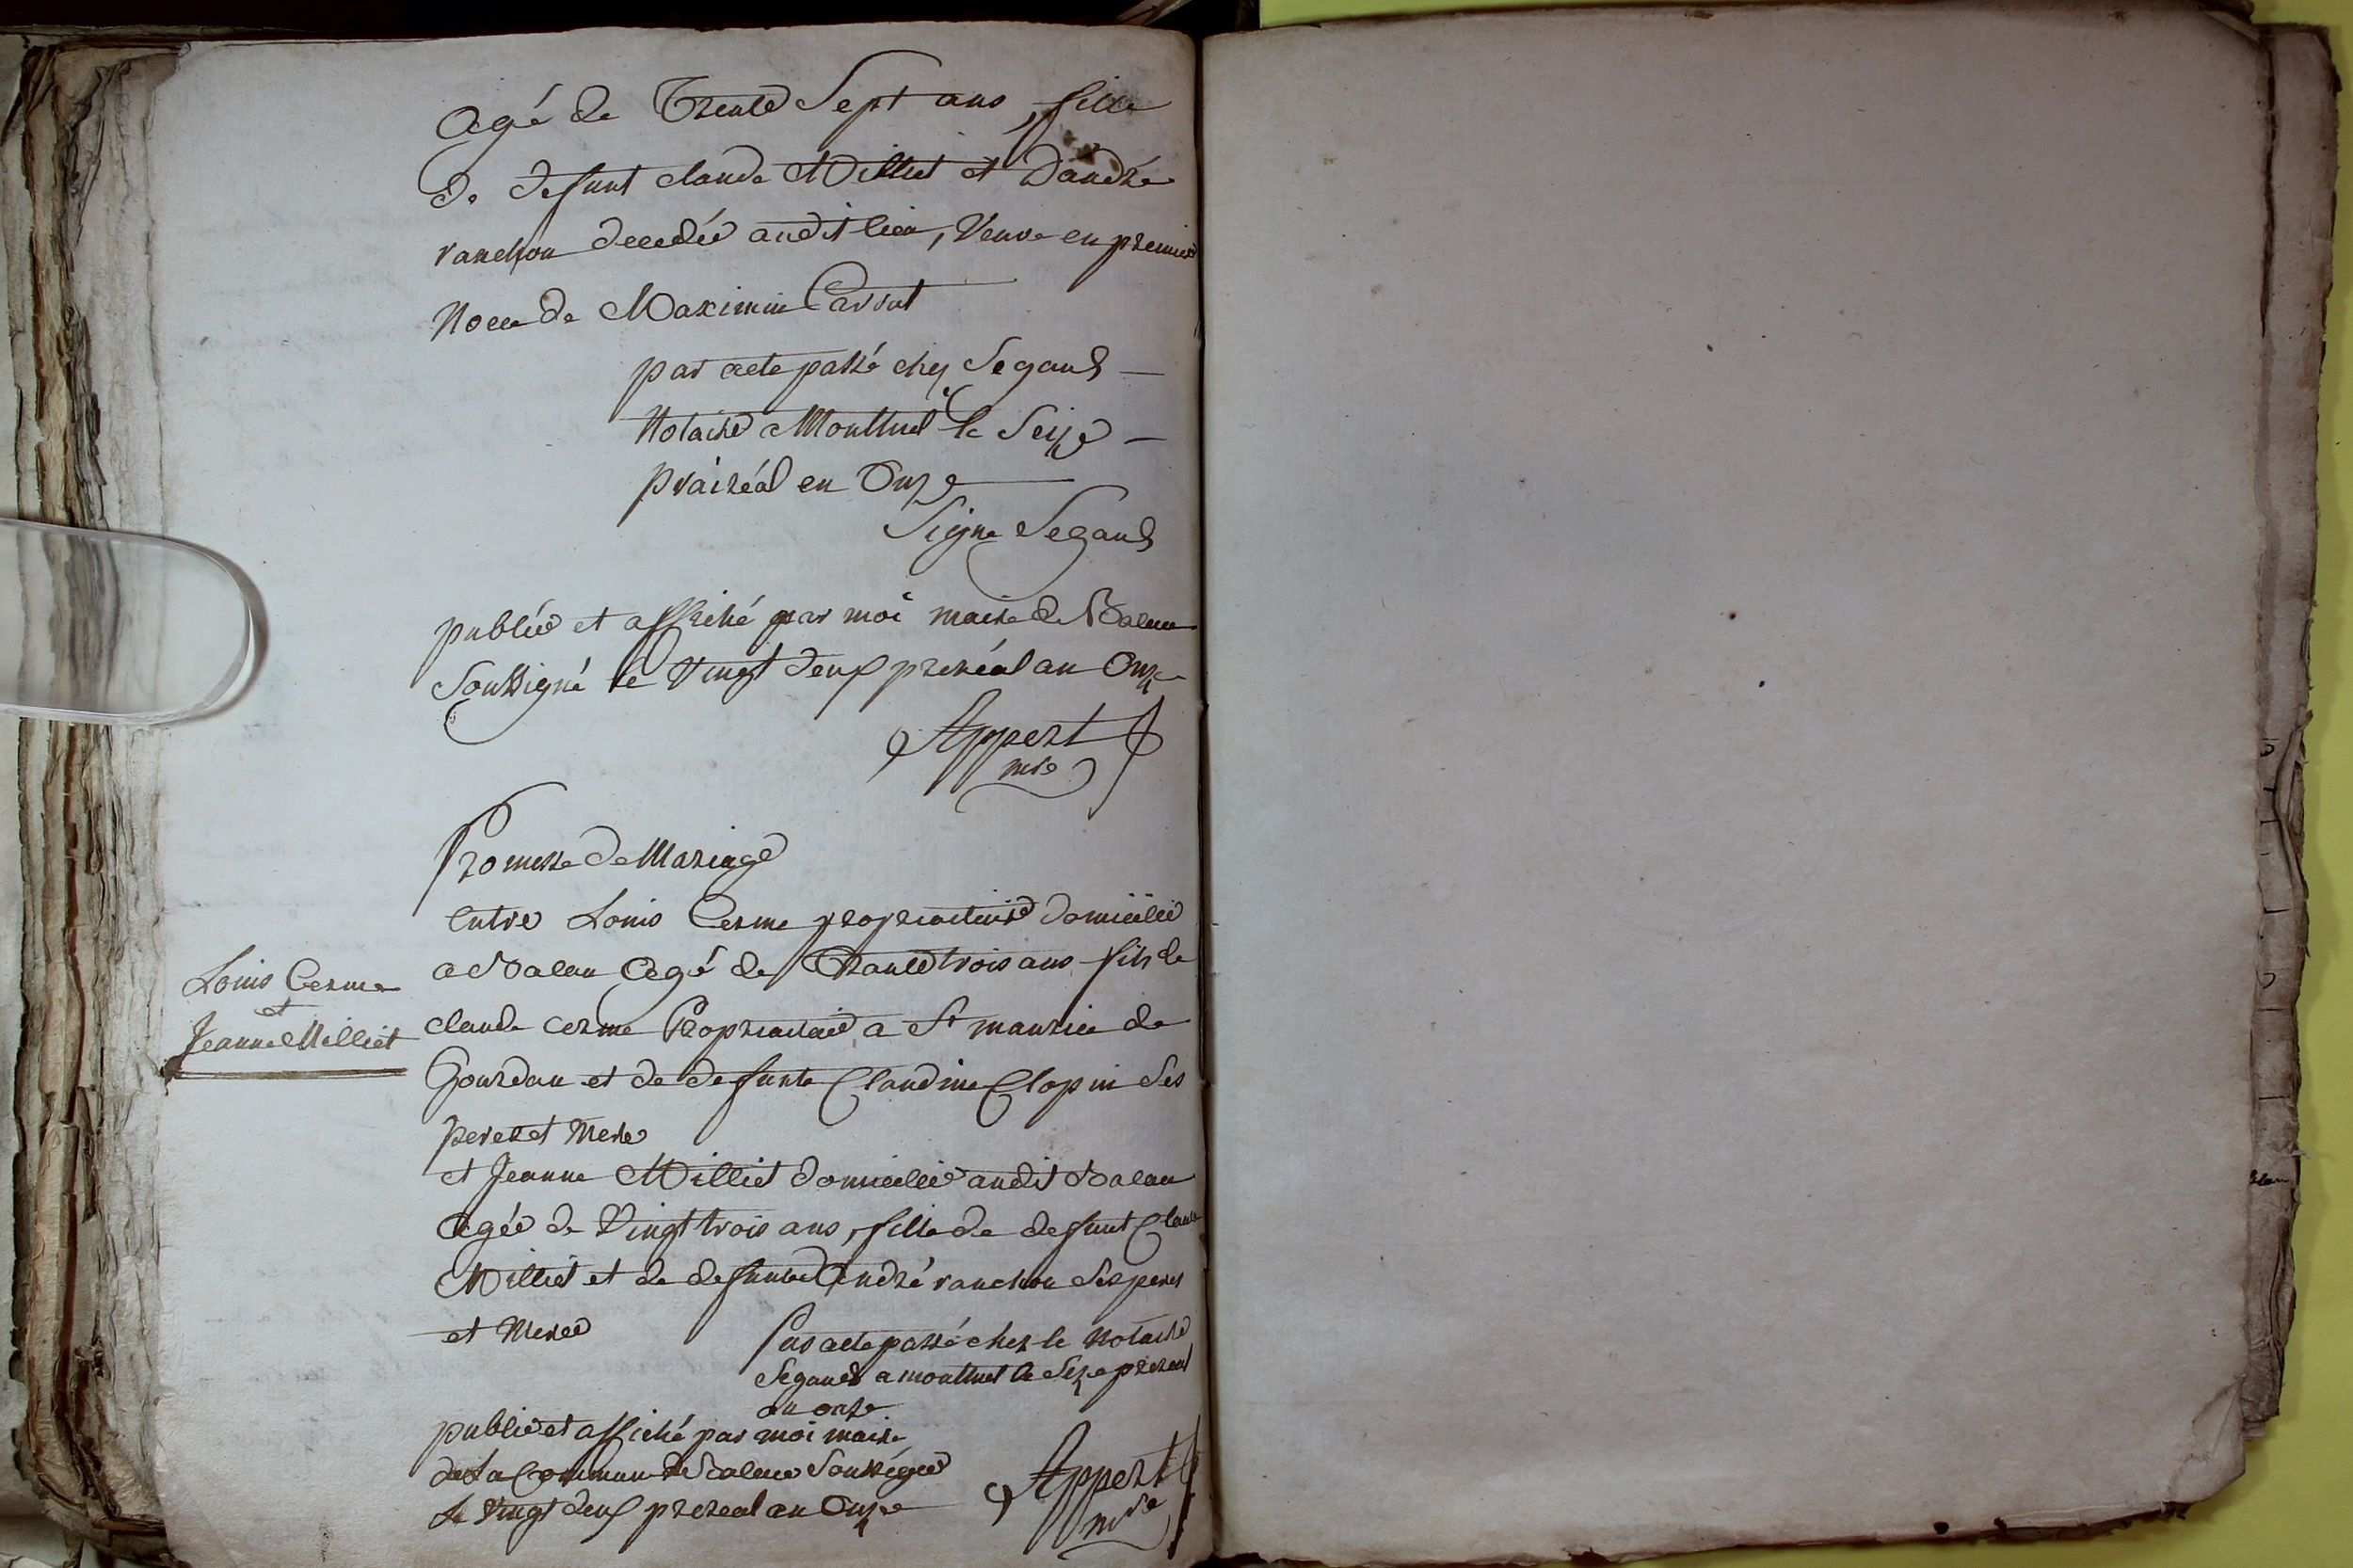 agé de Trente Sept ans, fille
de defunt claude Milliet et Dandré
vanchon decedée audit lieu, Veuve en premier
Noce de Maximin Carrut
par acte passé chez Segaud
Notaire a Montluel le Seize
prairéal en Onze
Signe Segaud
publiée et affiché par moi maire de Balan
Soussigné le Vingt deux preréal an Onze
Appert
mre
Promesse de Mariage
entre Louis Cerme proprietaire domicilié
a Balan agé de Trante trois ans fils de
Louis Cerme
et
Jeanne Milliet
claude cerme Proprietaire a St maurice de
Gourdan et de defunte Claudine Clopin Ses
peres et Mere
et Jeanne Milliet domiciliée audit Balan
agée de Vingt trois ans, fille de defunt Claude
Milliet et de defunte André vanchon Ses peres
et Meres
Par acte passé chez le Notaire
Segaud a montluel le Seze prereal
an onze
publié et affiché par moi maire
de La Commune de Balan Soussigné
Le Vingt deux prereal an Onze
Appert
mre